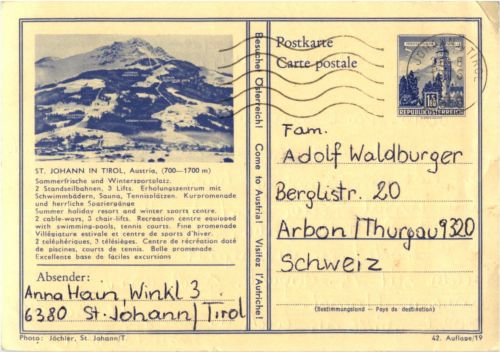 Postkarte
Carte postale
REPUBLIK ÖSTERREICH
ST. JOHANN IN TIROL, Austria, (700—1700 m)
Sommerfrische und Wintersportplatz.
2 Standseilbahnen, 3 Lifts. Erholungszentrum mit
Schwimmbädern, Sauna, Tennisplätzen. Kurpromenade
und herrliche Spaziergänge
Summer holiday resort and winter sports centre.
2 cable-ways, 3 chair-lifts. Recreation centre equipped
with swimming-pools, tennis courts. Fine promenade
Villégiature estivale et centre de sports d'hiver.
2 téléphériques, 3 télésièges. Centre de récréation doté
de piscines, courts de tennis. Belle promenade.
Excellente base de faciles excursions
Absender:
Anna Haun, Winkl 3
6380 St. Johann/Tirol
Photo: Jöchler, St. Johann/T
Besuchet Österreich! Come to Austria! Visitez l'Autriche!
Fam.
Adolf Waldburger
Berglistr. 20
Arbon/Thurgau 9320
Schweiz
(Bestimmungsland - Pays de destination)
42. Auflage/19